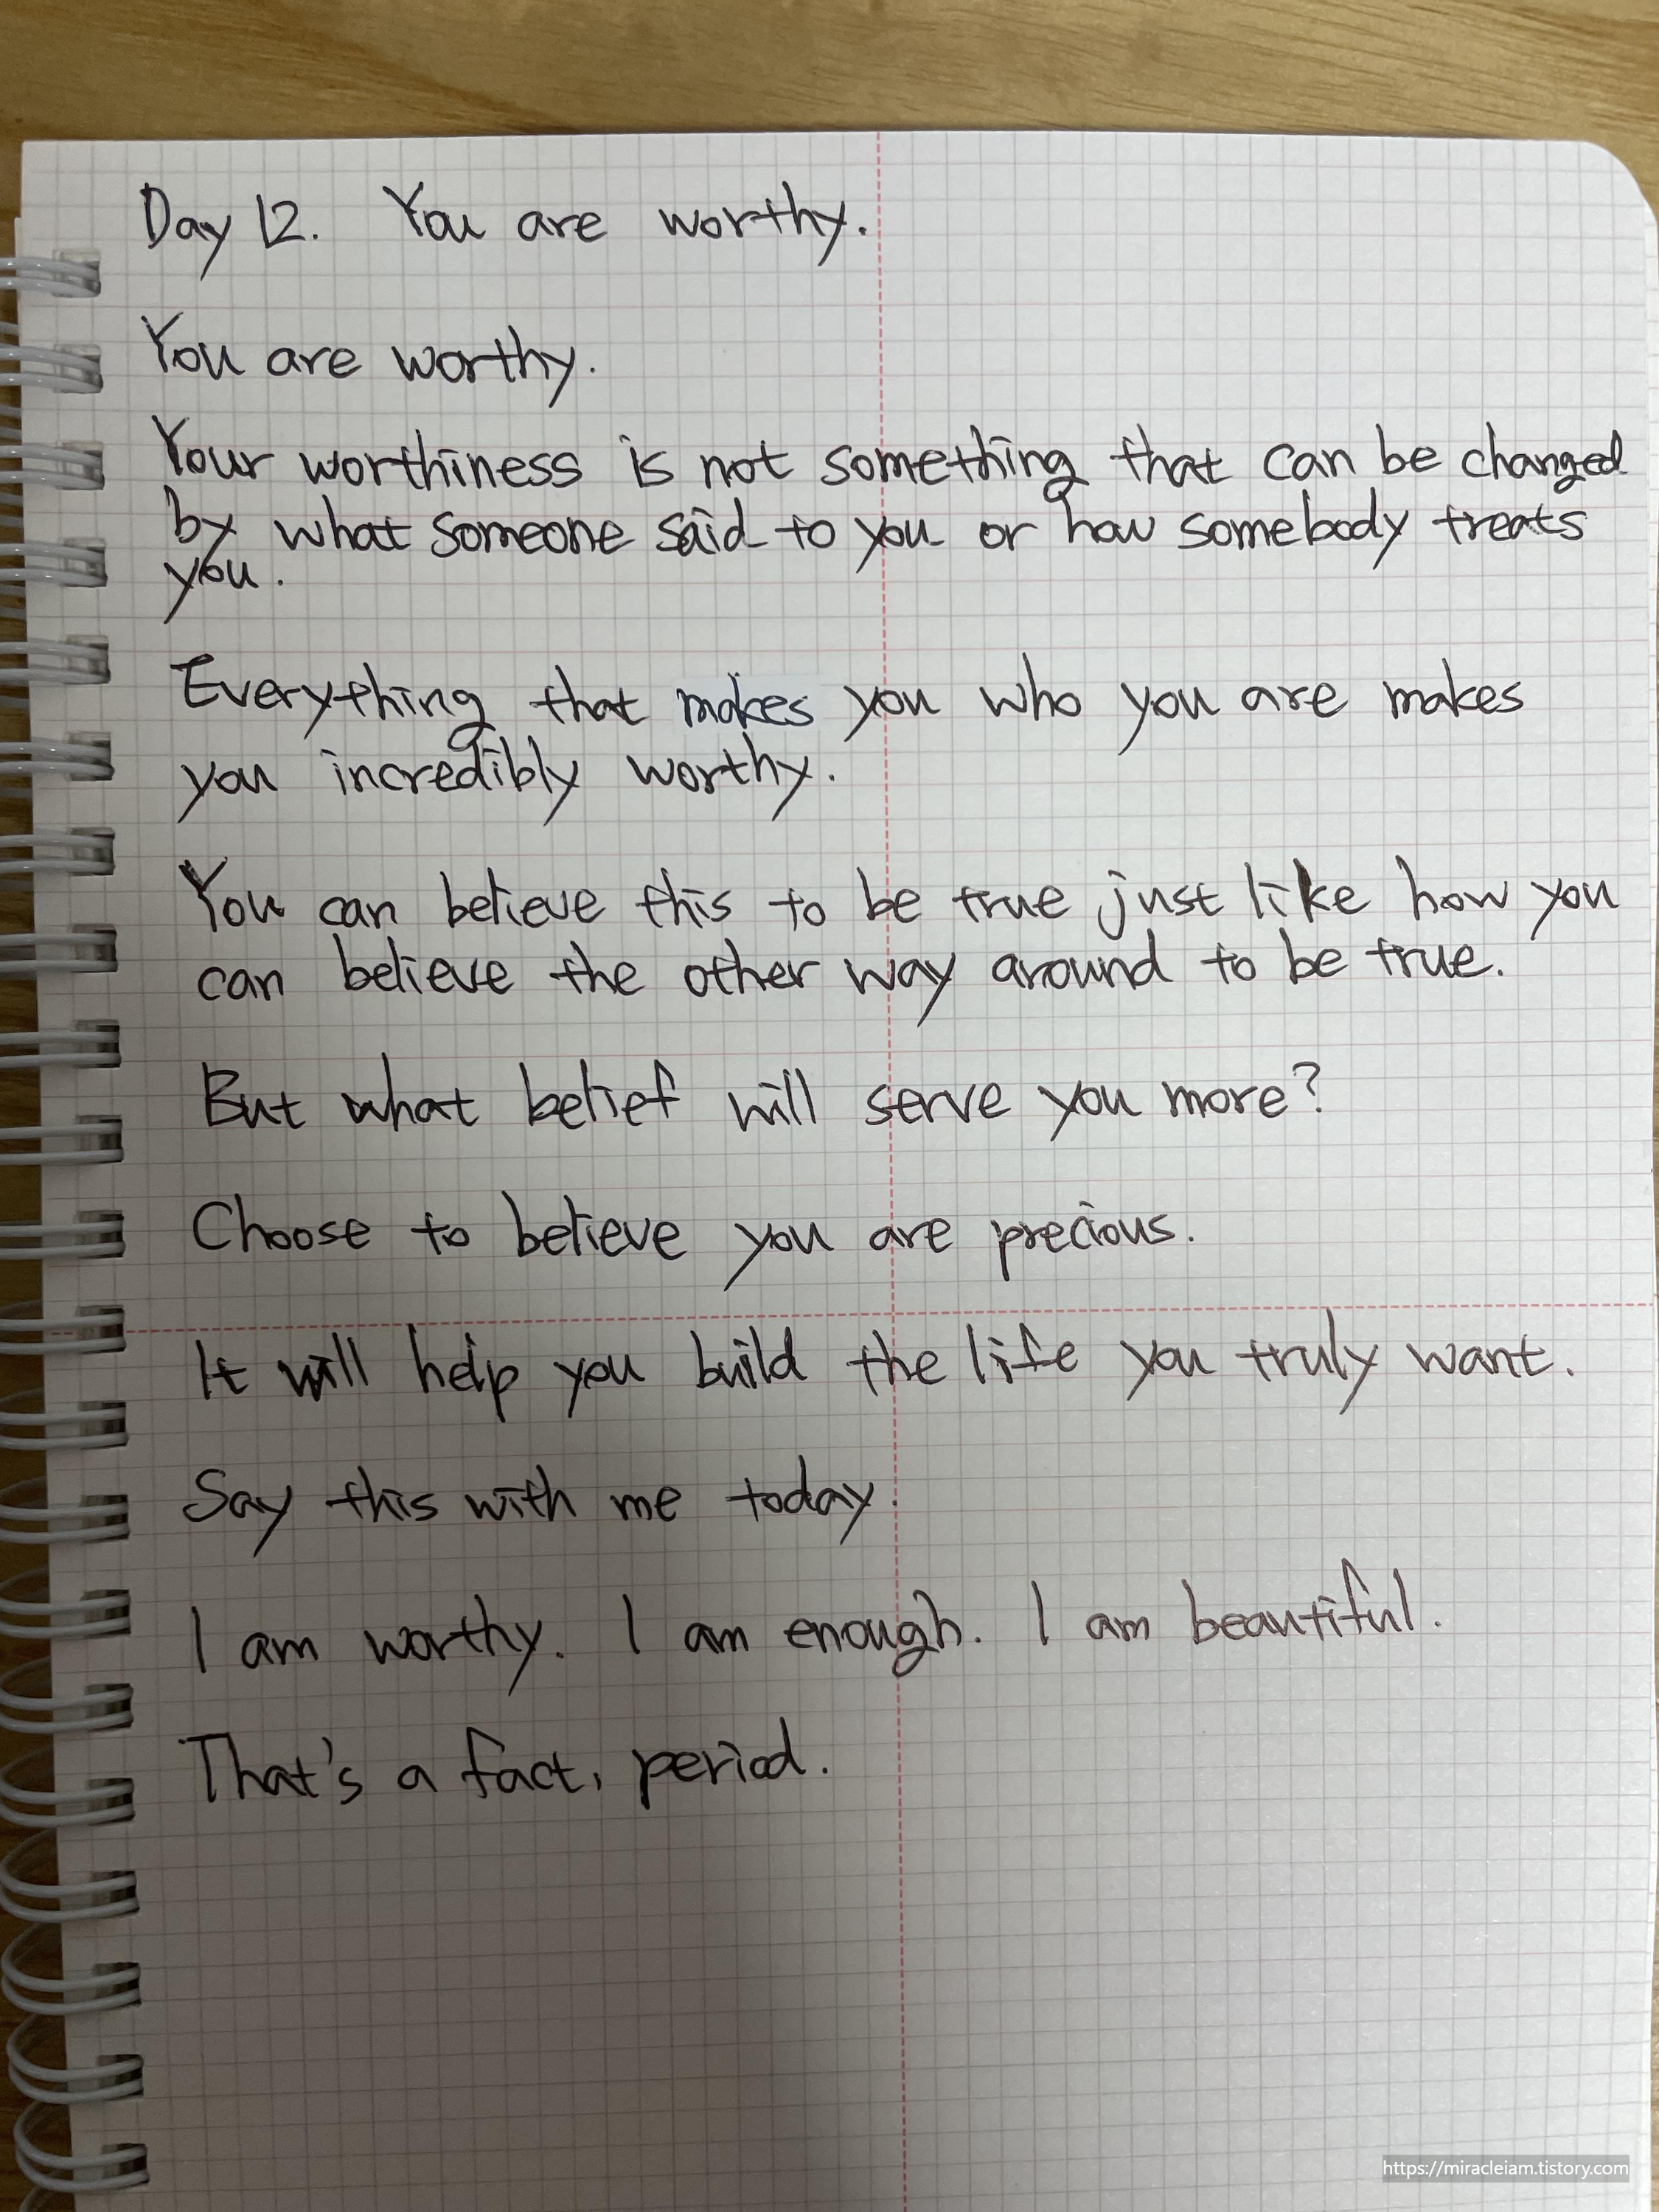 Day 12. You are worthy.
You are worthy.
Your worthiness is not something that can be changed
by what someone said to you or how somebody treats
you.
Everything that makes you who you are makes
you incredibly worthy.
You can believe this to be true just like how you
can believe the other way around to be true.
But what belief will serve you more?
Choose to believe you are precious.
It will help you build the life you truly want.
Say this with me today.
I am worthy. I am enough. I am beautiful.
That's a fact, period.
https://miracleiam.tistory.com